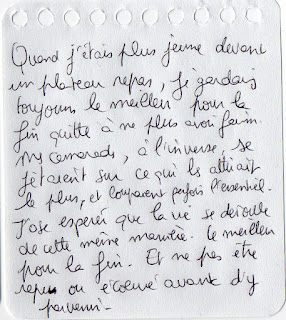 Quand j'étais plus jeune devant
un plateau repas, je gardais
toujours le meilleur pour la
fin quitte à ne plus avoir faim.
Mes camarades, à l'inverse, se
jetaient sur ce qui ls attirait
le plus, et loupaient parfois l'essentiel.
J'ose espérer que la vie se déroule
de cette même manière. Le meilleur
pour la fin. Et ne pas être
repu ou écoeuré avant d'y
parvenir.